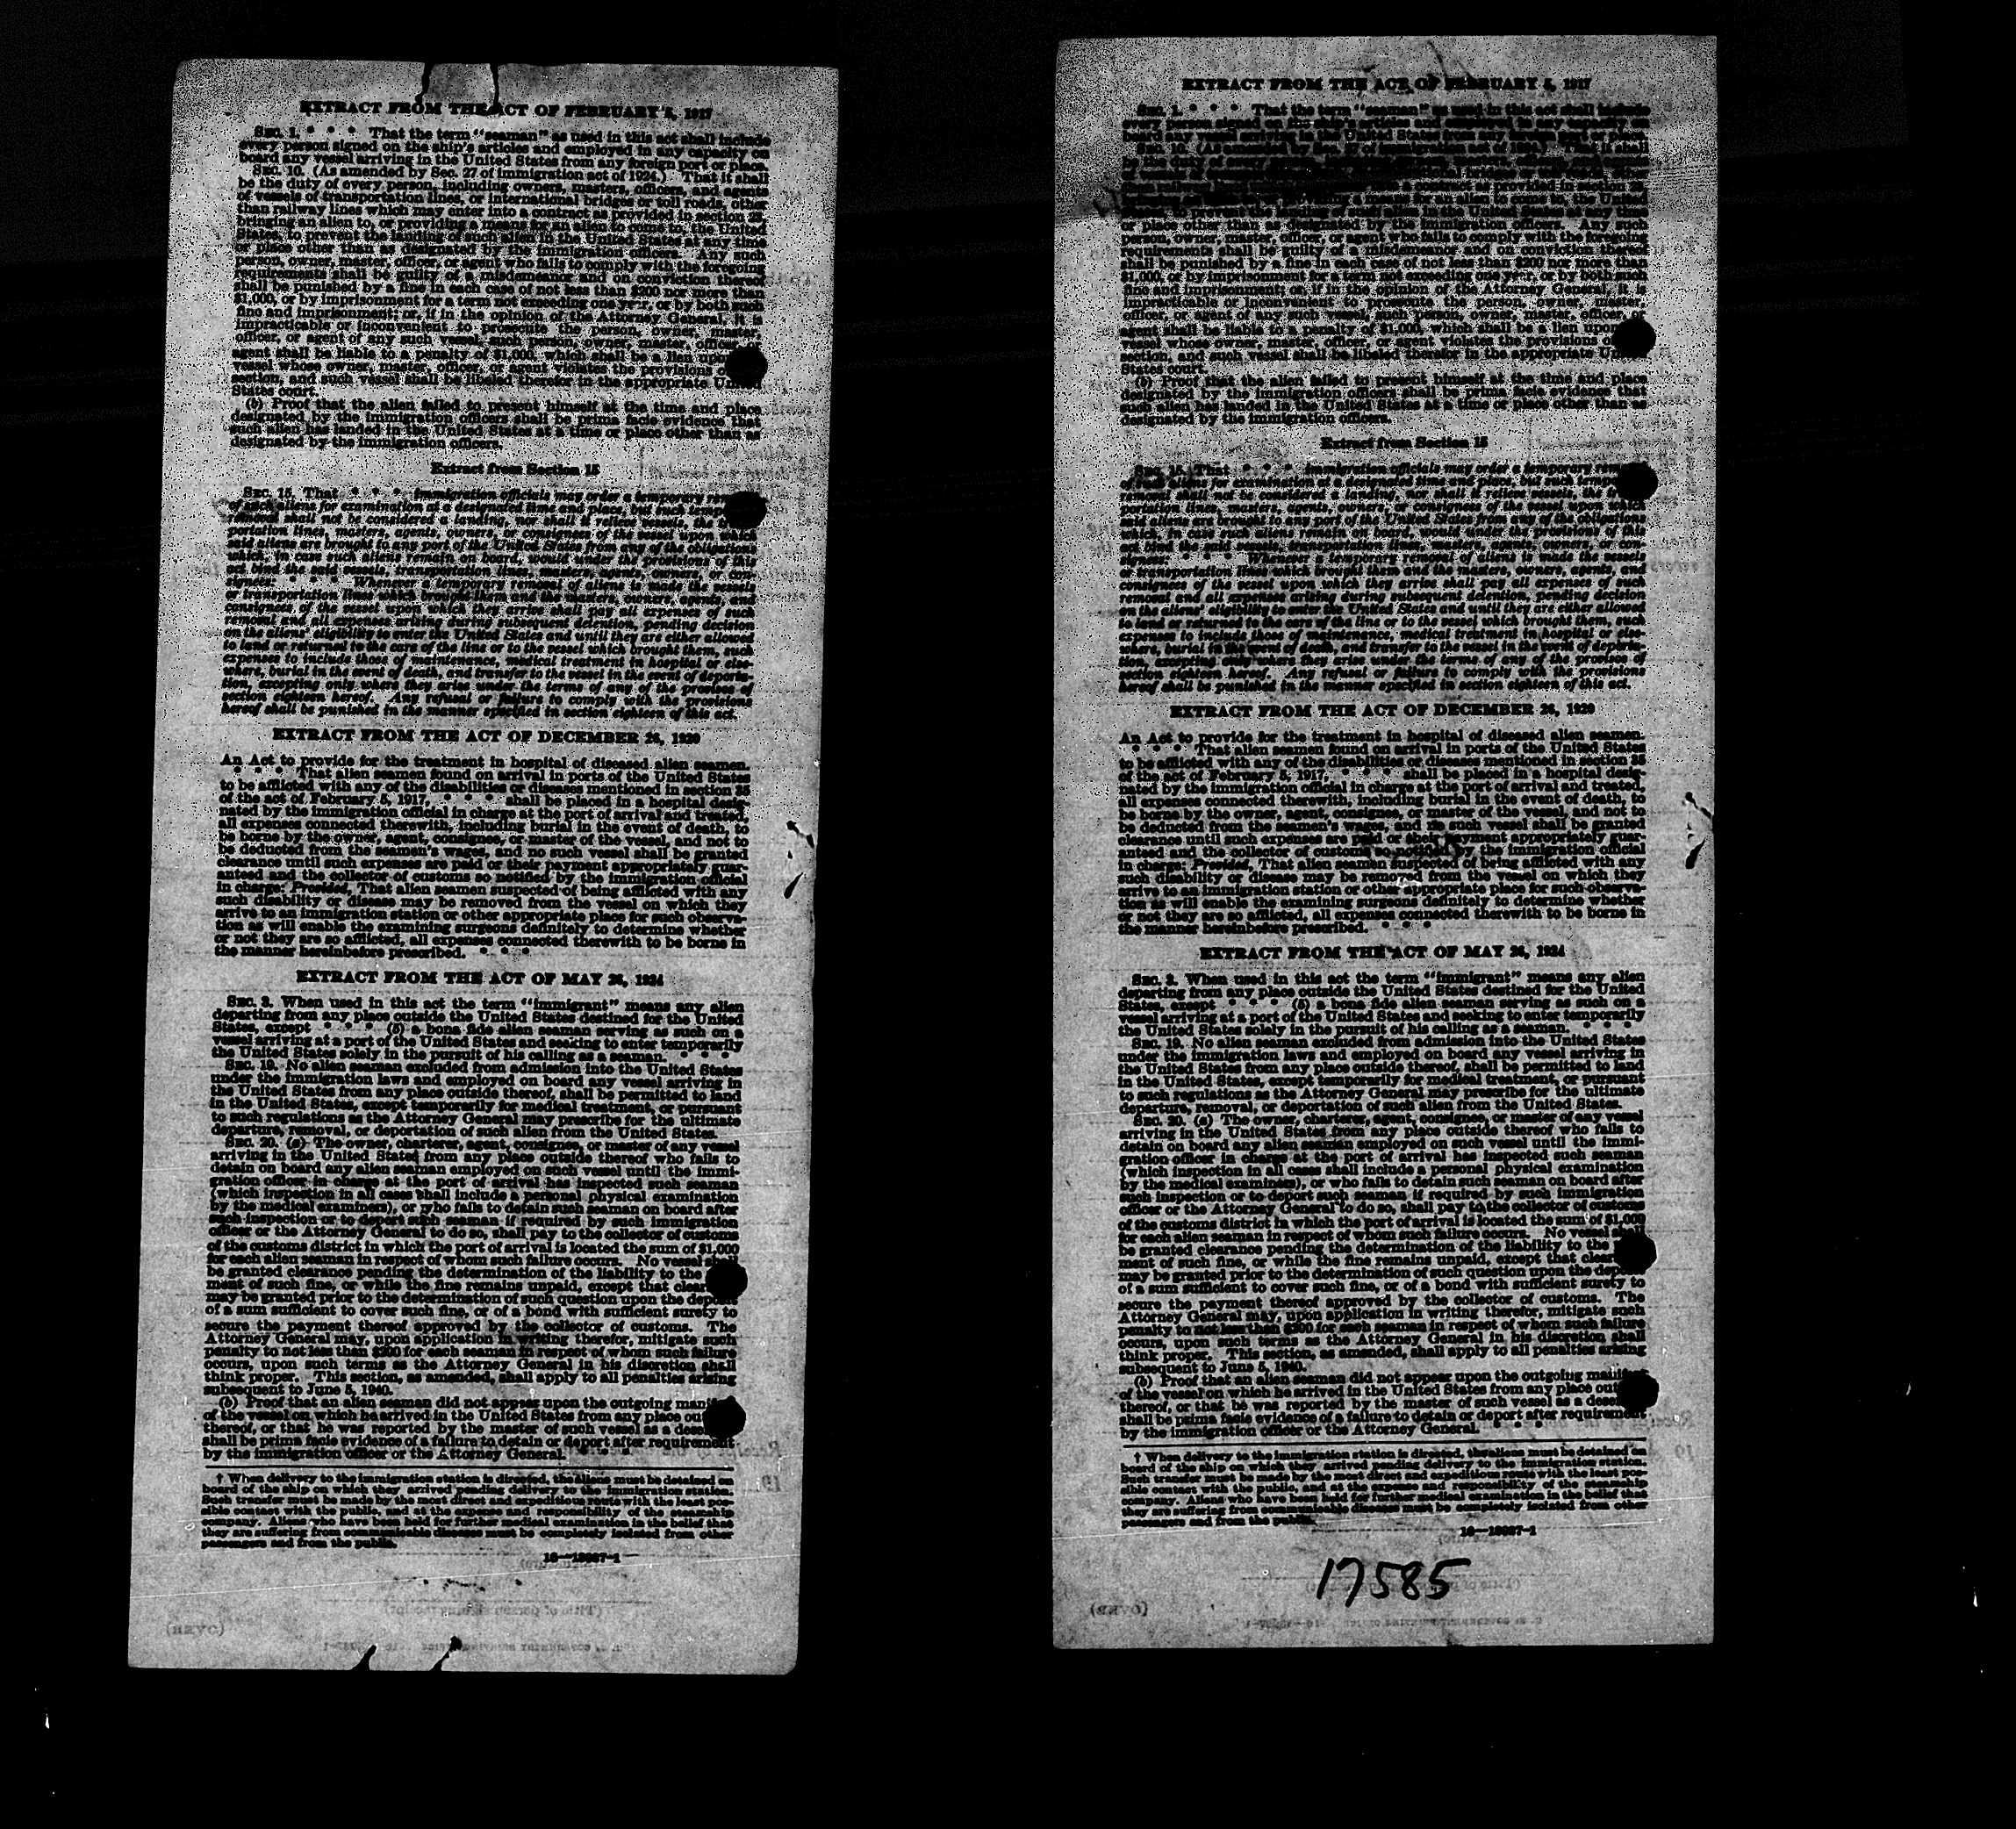 EXTRACT FROM THE ACT OF FEBRUARY 5, 1917
SEC. 1. * * * That the term "seaman" as used in this act shall include
every person signed on the ship's articles and employed in any capacity on
board any vessel arriving in the United States from any foreign port or place.
SEC. 10. (As amended by Sec. 27 of immigration act of 1924.) That it shall
be the duty of every person, including owners, masters, officers, and agents
of vessels of transportation lines, or international bridges or toll roads, other
than railway lines which may enter into a contract as provided in section 23,
bringing an alien to, or providing a means for an alien to come to, the United
States, to prevent the landing of such alien in the United States at any time
or place other than as designated by the immigration officers. Any such
person, owner, master, officer, or agent who fails to comply with the foregoing
requirements shall be guilty of a misdemeanor and on conviction thereof
shall be punished by a fine in each case of not less than $200 nor more than
$1,000, or by imprisonment for a term not exceeding one year, or by both such
fine and imprisonment; or, if in the opinion of the Attorney General, it is
impracticable or inconvenient to prosecute the person, owner, master,
officer, or agent of any such vessel, such person, owner, master, officer, or
agent shall be liable to a penalty of $1,000, which shall be a lien upon
vessel whose owner, master, officer, or agent violates the provisions
section, and such vessel shall be libeled therefor in the appropriate United
States court.
(b) Proof that the alien failed to present himself at the time and place
designated by the immigration officers shall be prima facie evidence that
such alien has landed in the United States at a time or place other than as
designated by the immigration officers.
Extract from Section 15
SEC. 15. That * * * immigration officials may order a temporary
of such aliens for examination at a designated time and place, but such
removal shall not be considered a landing, nor shall it relieve vessels, the
portation lines, masters, agents, owners, or consignees of the vessel upon which
said aliens are brought to any port of the United States from any of the obligations
which, in case such aliens remain on board, would under the provisions of this
act bind the said vessels, transportation lines, masters, agents, owners, or con-
signees: * * * Whenever a temporary removal of aliens is made the vessels
or transportation lines which brought them and the masters, owners, agents, and
consignees of the vessel upon which they arrive shall pay all expenses of such
removal and all expenses arising during subsequent detention, pending decision
on the aliens' eligibility to enter the United States and until they are either allowed
to land or returned to the care of the line or to the vessel which brought them, such
expenses to include those of maintenance, medical treatment in hospital or else-
where, burial in the event of death, and transfer to the vessel in the event of deporta-
tion, excepting only where they arise under the terms of any of the provisos of
section eighteen hereof. Any refusal or failure to comply with the provisions
hereof shall be punished in the manner specified in section eighteen of this act.
EXTRACT FROM THE ACT OF DECEMBER 26, 1920
An Act to provide for the treatment in hospital of diseased alien seamen.
* * * That alien seamen found on arrival in ports of the United States
to be afflicted with any of the disabilities or diseases mentioned in section 35
of the act of February 5, 1917, * * * shall be placed in a hospital desig-
nated by the immigration official in charge at the port of arrival and treated,
all expenses connected therewith, including burial in the event of death, to
be borne by the owner, agent, consignee, or master of the vessel, and not to
be deducted from the seamen's wages, and no such vessel shall be granted
clearance until such expenses are paid or their payment appropriately guar-
anteed and the collector of customs so notified by the immigration official
in charge: Provided, That alien seamen suspected of being afflicted with any
such disability or disease may be removed from the vessel on which they
arrive to an immigration station or other appropriate place for such observa-
tion as will enable the examining surgeons definitely to determine whether
or not they are so afflicted, all expenses connected therewith to be borne in
the manner hereinbefore prescribed. * * *
EXTRACT FROM THE ACT OF MAY 26, 1924
SEC. 3. When used in this act the term "immigrant" means any alien
departing from any place outside the United States destined for the United
States, except * * * (5) a bona fide alien seaman serving as such on a
vessel arriving at a port of the United States and seeking to enter temporarily
the United States solely in the pursuit of his calling as a seaman. * * *
SEC. 19. No alien seaman excluded from admission into the United States
under the immigration laws and employed on board any vessel arriving in
the United States from any place outside thereof, shall be permitted to land
in the United States, except temporarily for medical treatment, or pursuant
to such regulations as the Attorney General may prescribe for the ultimate
departure, removal, or deportation of such alien from the United States.
SEC. 20. (a) The owner, charterer, agent, consignee, or master of any vessel
arriving in the United States from any place outside thereof who fails to
detain on board any alien seaman employed on such vessel until the immi-
gration officer in charge at the port of arrival has inspected such seaman
(which inspection in all cases shall include a personal physical examination
by the medical examiners), or who fails to detain such seaman on board after
such inspection or to deport such seaman if required by such immigration
officer or the Attorney General to do so, shall pay to the collector of customs
of the customs district in which the port of arrival is located the sum of $1,000
for each alien seaman in respect of whom such failure occurs. No vessel shall
be granted clearance pending the determination of the liability to the
ment of such fine, or while the fine remains unpaid, except that clear
may be granted prior to the determination of such question upon the depo
of a sum sufficient to cover such fine, or of a bond with sufficient surety to
secure the payment thereof approved by the collector of customs. The
Attorney General may, upon application in writing therefor, mitigate such
penalty to not less than $200 for each seaman in respect of whom such failure
occurs, upon such terms as the Attorney General in his discretion shall
think proper. This section, as amended, shall apply to all penalties arising
subsequent to June 5, 1940.
(b) Proof that an alien seaman did not appear upon the outgoing manifest
of the vessel on which he arrived in the United States from any place out
thereof, or that he was reported by the master of such vessel as a deser
shall be prima facie evidence of a failure to detain or deport after requirement
by the immigration officer or the Attorney General. * * *
† When delivery to the immigration station is directed, the aliens must be detained on
board of the ship on which they arrived pending delivery to the immigration station.
Such transfer must be made by the most direct and expeditious route with the least pos-
sible contact with the public, and at the expense and responsibility of the steamship
company. Aliens who have been held for further medical examination in the belief that
they are suffering from communicable diseases must be completely isolated from other
passengers and from the public.
16—18027-1
EXTRACT FROM THE ACT OF FEBRUARY 5, 1917
SEC. 1. * * * That the term "seaman" as used in this act shall include
every person signed on the ship's articles and employed in any capacity on
board any vessel arriving in the United States from any foreign port or place.
SEC. 10. (As amended by Sec. 27 of immigration act of 1924.) That it shall
be the duty of every person,
as provided in section
an alien to come to, the United
in the United States at any time
or place other than as designated by the immigration officers. Any such
person, owner, master, officer, or agent who fails to comply with the foregoing
requirements shall be guilty of a misdemeanor and on conviction thereof
shall be punished by a fine in each case of not less than $200 nor more than
$1,000, or by imprisonment for a term not exceeding one year, or by both such
fine and imprisonment; or, if in the opinion of the Attorney General, it is
impracticable or inconvenient to prosecute the person, owner, master,
officer, or agent of any such vessel, such person, owner, master, officer, or
agent shall be liable to a penalty of $1,000, which shall be a lien upon
vessel whose owner, master, officer, or agent violates the provisions
section, and such vessel shall be libeled therefor in the appropriate United
States court.
(b) Proof that the alien failed to present himself at the time and place
designated by the immigration officers shall be prima facie evidence that
such alien has landed in the United States at a time or place other than as
designated by the immigration officers.
Extract from Section 15
SEC. 15. That * * * immigration officials may order a temporary
of such aliens for examination at a designated time and place, but such
removal shall not be considered a landing, nor shall it relieve vessels, the
portation lines, masters, agents, owners, or consignees of the vessel upon which
said aliens are brought to any port of the United States from any of the obligations
which, in case such aliens remain on board, would under the provisions of this
act bind the said vessels, transportation lines, masters, agents, owners, or con-
signees: * * * Whenever a temporary removal of aliens is made the vessels
or transportation lines which brought them and the masters, owners, agents, and
consignees of the vessel upon which they arrive shall pay all expenses of such
removal and all expenses arising during subsequent detention, pending decision
on the aliens' eligibility to enter the United States and until they are either allowed
to land or returned to the care of the line or to the vessel which brought them, such
expenses to include those of maintenance, medical treatment in hospital or else-
where, burial in the event of death, and transfer to the vessel in the event of deporta-
tion, excepting only where they arise under the terms of any of the provisos of
section eighteen hereof. Any refusal or failure to comply with the provisions
hereof shall be punished in the manner specified in section eighteen of this act.
EXTRACT FROM THE ACT OF DECEMBER 26, 1920
An Act to provide for the treatment in hospital of diseased alien seamen.
* * * That alien seamen found on arrival in ports of the United States
to be afflicted with any of the disabilities or diseases mentioned in section 35
of the act of February 5, 1917, * * * shall be placed in a hospital desig-
nated by the immigration official in charge at the port of arrival and treated,
all expenses connected therewith, including burial in the event of death, to
be borne by the owner, agent, consignee, or master of the vessel, and not to
be deducted from the seamen's wages, and no such vessel shall be granted
clearance until such expenses are paid or their payment appropriately guar-
anteed and the collector of customs so notified by the immigration official
in charge: Provided, That alien seamen suspected of being afflicted with any
such disability or disease may be removed from the vessel on which they
arrive to an immigration station or other appropriate place for such observa-
tion as will enable the examining surgeons definitely to determine whether
or not they are so afflicted, all expenses connected therewith to be borne in
the manner hereinbefore prescribed. * * *
EXTRACT FROM THE ACT OF MAY 26, 1924
SEC. 3. When used in this act the term "immigrant" means any alien
departing from any place outside the United States destined for the United
States, except * * * (5) a bona fide alien seaman serving as such on a
vessel arriving at a port of the United States and seeking to enter temporarily
the United States solely in the pursuit of his calling as a seaman. * * *
SEC. 19. No alien seaman excluded from admission into the United States
under the immigration laws and employed on board any vessel arriving in
the United States from any place outside thereof, shall be permitted to land
in the United States, except temporarily for medical treatment, or pursuant
to such regulations as the Attorney General may prescribe for the ultimate
departure, removal, or deportation of such alien from the United States.
SEC. 20. (a) The owner, charterer, agent, consignee, or master of any vessel
arriving in the United States from any place outside thereof who fails to
detain on board any alien seaman employed on such vessel until the immi-
gration officer in charge at the port of arrival has inspected such seaman
(which inspection in all cases shall include a personal physical examination
by the medical examiners), or who fails to detain such seaman on board after
such inspection or to deport such seaman if required by such immigration
officer or the Attorney General to do so, shall pay to the collector of customs
of the customs district in which the port of arrival is located the sum of $1,000
for each alien seaman in respect of whom such failure occurs. No vessel shall
be granted clearance pending the determination of the liability to the
ment of such fine, or while the fine remains unpaid, except that clear
may be granted prior to the determination of such question upon the depo
of a sum sufficient to cover such fine, or of a bond with sufficient surety to
secure the payment thereof approved by the collector of customs. The
Attorney General may, upon application in writing therefor, mitigate such
penalty to not less than $200 for each seaman in respect of whom such failure
occurs, upon such terms as the Attorney General in his discretion shall
think proper. This section, as amended, shall apply to all penalties arising
subsequent to June 5, 1940.
(b) Proof that an alien seaman did not appear upon the outgoing manifest
of the vessel on which he arrived in the United States from any place out
thereof, or that he was reported by the master of such vessel as a deser
shall be prima facie evidence of a failure to detain or deport after requirement
by the immigration officer or the Attorney General. * * *
† When delivery to the immigration station is directed, the aliens must be detained on
board of the ship on which they arrived pending delivery to the immigration station.
Such transfer must be made by the most direct and expeditious route with the least pos-
sible contact with the public, and at the expense and responsibility of the steamship
company. Aliens who have been held for further medical examination in the belief that
they are suffering from communicable diseases must be completely isolated from other
passengers and from the public.
16—18027-1
17585